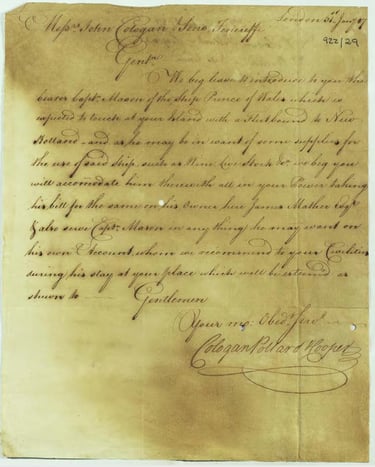 London 31st Jany 87
922/29
Messrs John Cologan & Sons Teneriffe
Gentn
We beg leave to introduce to you the
bearer Captn Mason of the Ship Prince of Wales which is
expected to touch at your Island with a Fleet bound to New
Holland and as he may be in want of some supplies for
the use of said Ship, such as Wine Live Stock &c we beg you
will accomodate him therewith all in your Power taking
his bill for the same on his owner here James Mather Esqr
& also serve Captn Mason in any thing he may want on
his own Account, whom we recommend to your Civilities
during his stay at your place which will be esteemd as
shewn to Gentlemen
Your mo: Obedt Servts
Cologan Pollard & Cooper